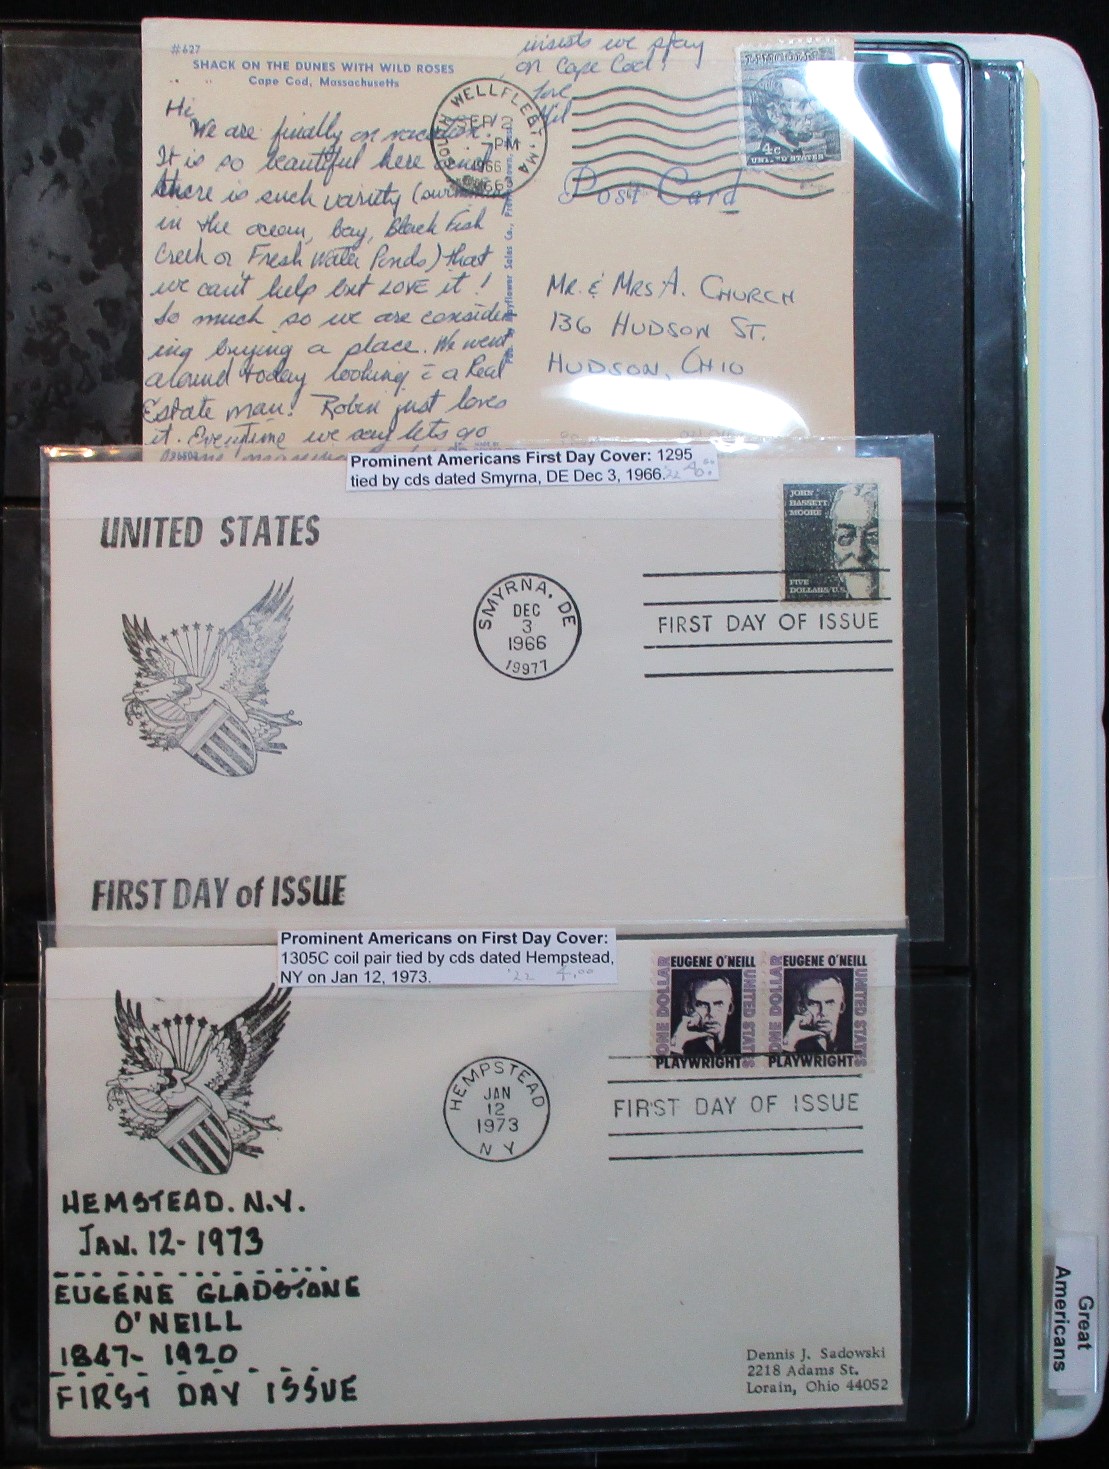 #627
SHACK ON THE DUNES WITH WILD ROSES
Cape Cod, Massachusetts
Hi,
We are finally on vacation.
It is so beautiful here and
there is such variety (
in the ocean, bay, Black Fish
Creek or Fresh Water Ponds) that
we can't help but LOVE it!
So much so we are consider
ing buying a place. We went
around today looking c̄ a Real
Estate man! Robin just loves
it. Everytime we say lets go
insists we stay
on Cape Cod!
Love
SOUTH WELLFLEET · MA
SEP
7 PM
1966
4c
UNITED STATES
Post Card
Pub. by Mayflower Sales Co.,
MR. & MRS A. CHURCH
136 HUDSON ST.
HUDSON, OHIO
Prominent Americans First Day Cover: 1295
tied by cds dated Smyrna, DE Dec 3, 1966.
'22
UNITED STATES
SMYRNA, DE
DEC
3
1966
19977
JOHN
BASSETT
MOORE
FIVE
DOLLARS/U.S.
FIRST DAY OF ISSUE
FIRST DAY of ISSUE
Prominent Americans on First Day Cover:
1305C coil pair tied by cds dated Hempstead,
NY on Jan 12, 1973.
'22 4.00
EUGENE O'NEILL
ONE DOLLAR
UNITED STATES
PLAYWRIGHT
EUGENE O'NEILL
ONE DOLLAR
UNITED STATES
PLAYWRIGHT
HEMPSTEAD
JAN
12
1973
N Y
FIRST DAY OF ISSUE
HEMSTEAD. N.Y.
JAN. 12-1973
EUGENE GLADSTONE
O'NEILL
1847- 1920
FIRST DAY ISSUE
Dennis J. Sadowski
2218 Adams St.
Lorain, Ohio 44052
Great
Americans